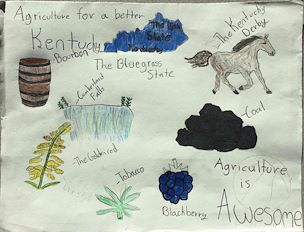 Agriculture for a better
Kentucky
Kentucky
The Bluegrass
State
-The Kentucky
Derby
Bourbon
-Cumberland
Falls
-Coal
-The Goldenrod
-Tobacco
Blackberry
Agriculture
is
Awesome